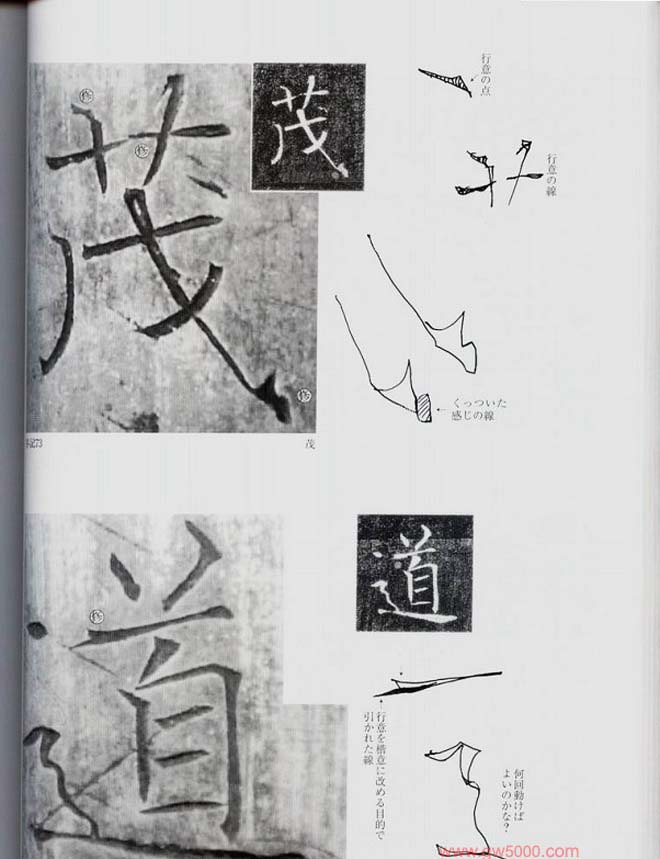 茂
修
修
修
茂
行意の点
行意の線
くっついた
感じの線
茂
道
修
道
行意を楷意に改める目的で
引かれた線
何回動けば
よいのかな?
www.qw5000.com